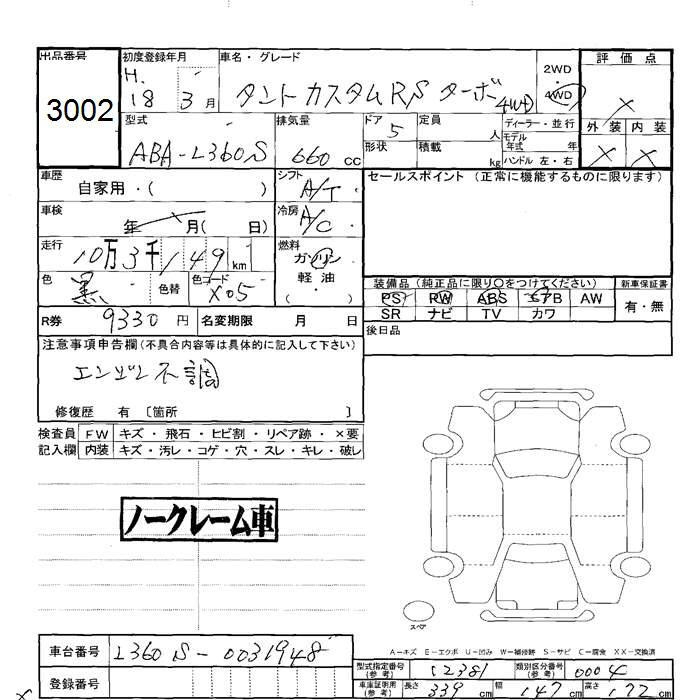 出品番号 初度登録年月 車名・グレード 2WD 評価点
3002 H. 18 3月 タントカスタムRS ターボ 4WD 4WD ×
型式 排気量 ドア 5 定員 人 ディーラー・並行 外装 内装
ABA-L360S 660 CC 形状 積載 kg モデル年式 年 ハンドル 左・右 × ×
車歴 自家用・( ) シフト A/T セールスポイント (正常に機能するものに限ります)
車検 年 月( 日) 冷房 A/C
走行 10万3千149 km 燃料 ガソリン 軽油 ( )
色 黒 色替 色コード X05
装備品 (純正品に限り○をつけてください) 新車保証書
PS RW ABS エアB AW 有・無
SR ナビ TV カワ
R券 9330 円 名変期限 月 日 後日品
注意事項申告欄(不具合内容等は具体的に記入して下さい)
エンジン不調
修復歴 有 〔箇所 〕
検査員 FW キズ・飛石・ヒビ割・リペア跡・×要
記入欄 内装 キズ・汚レ・コゲ・穴・スレ・キレ・破レ
ノークレーム車
スペア
A－キズ E－エクボ U－凹み W－補修跡 S－サビ C－腐食 XX－交換済
車台番号 L360S-0031948
型式指定番号(参考) 12381 類別区分番号(参考) 0004
登録番号
車庫証明用(参考) 長さ 339 cm 幅 147 cm 高さ 172 cm